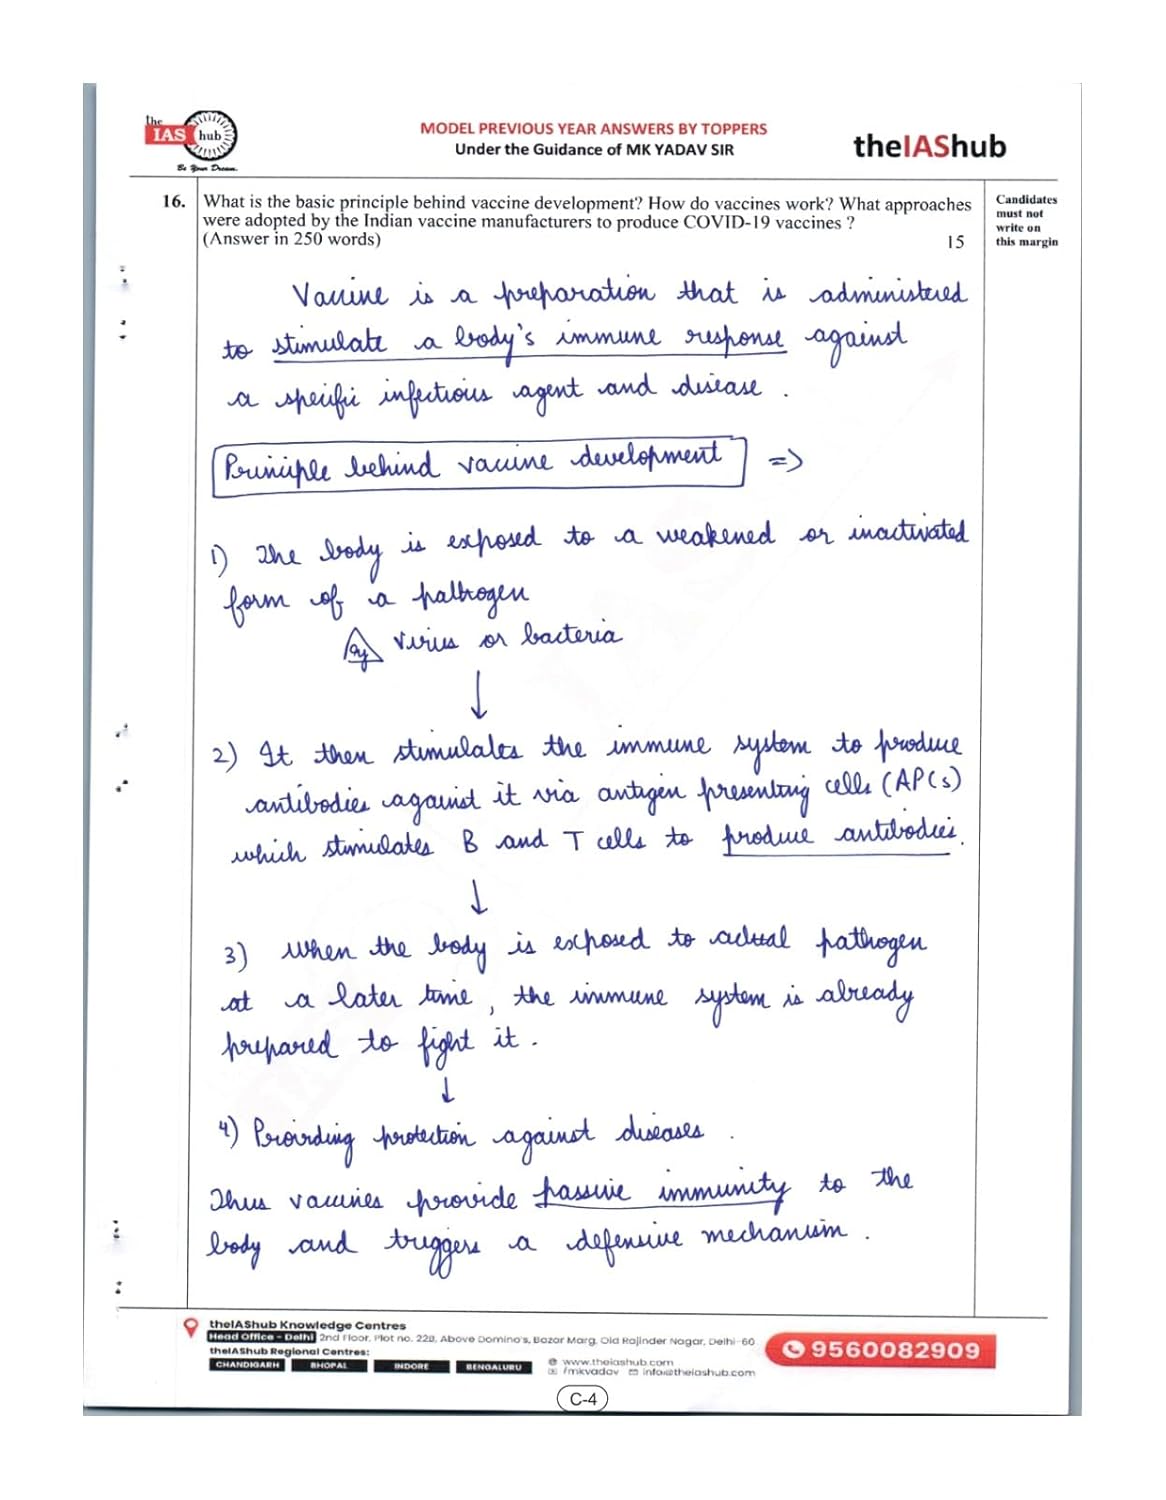 the
IAS hub
Be Your Dream.
MODEL PREVIOUS YEAR ANSWERS BY TOPPERS
Under the Guidance of MK YADAV SIR
theIAShub
16. What is the basic principle behind vaccine development? How do vaccines work? What approaches
were adopted by the Indian vaccine manufacturers to produce COVID-19 vaccines ?
(Answer in 250 words) 15
Candidates
must not
write on
this margin
Vaccine is a preparation that is administered
to stimulate a body's immune response against
a specific infectious agent and disease.
Principle behind vaccine development =>
1) The body is exposed to a weakened or inactivated
form of a pathogen
eg virus or bacteria
↓
2) It then stimulates the immune system to produce
antibodies against it via antigen presenting cells (APCs)
which stimulates B and T cells to produce antibodies.
↓
3) When the body is exposed to actual pathogen
at a later time, the immune system is already
prepared to fight it.
↓
4) Providing protection against diseases.
Thus vaccines provide passive immunity to the
body and triggers a defensive mechanism.
theIAShub Knowledge Centres
Head Office - Delhi 2nd Floor, Plot no. 22B, Above Domino's, Bazar Marg, Old Rajinder Nagar, Delhi-60
theIAShub Regional Centres:
CHANDIGARH BHOPAL INDORE BENGALURU
www.theiashub.com
/mkyadav info@theiashub.com
9560082909
C-4